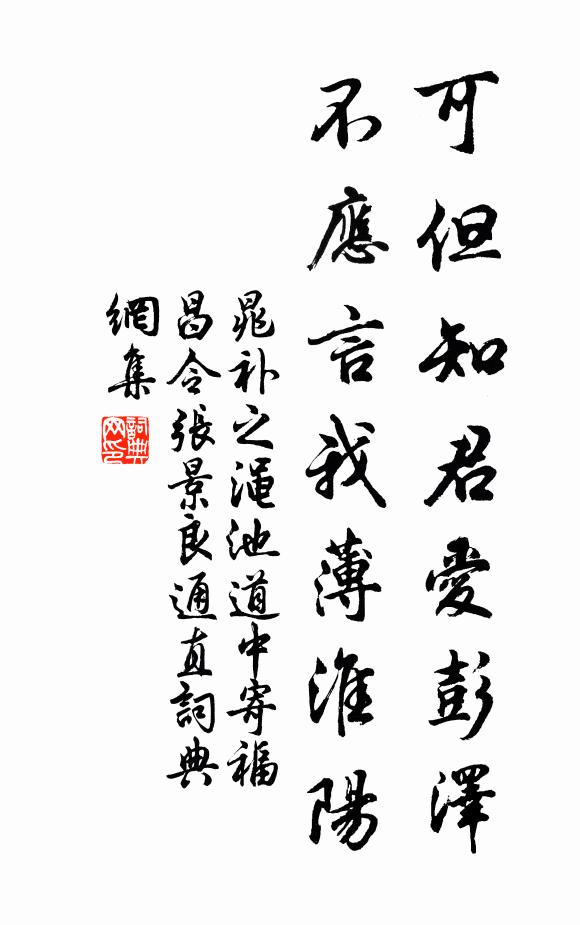 可但知君愛彭澤
不應言我薄淮陽
晁补之澠池道中寄福
昌令張景良通直詞典
網集
詞典
网印